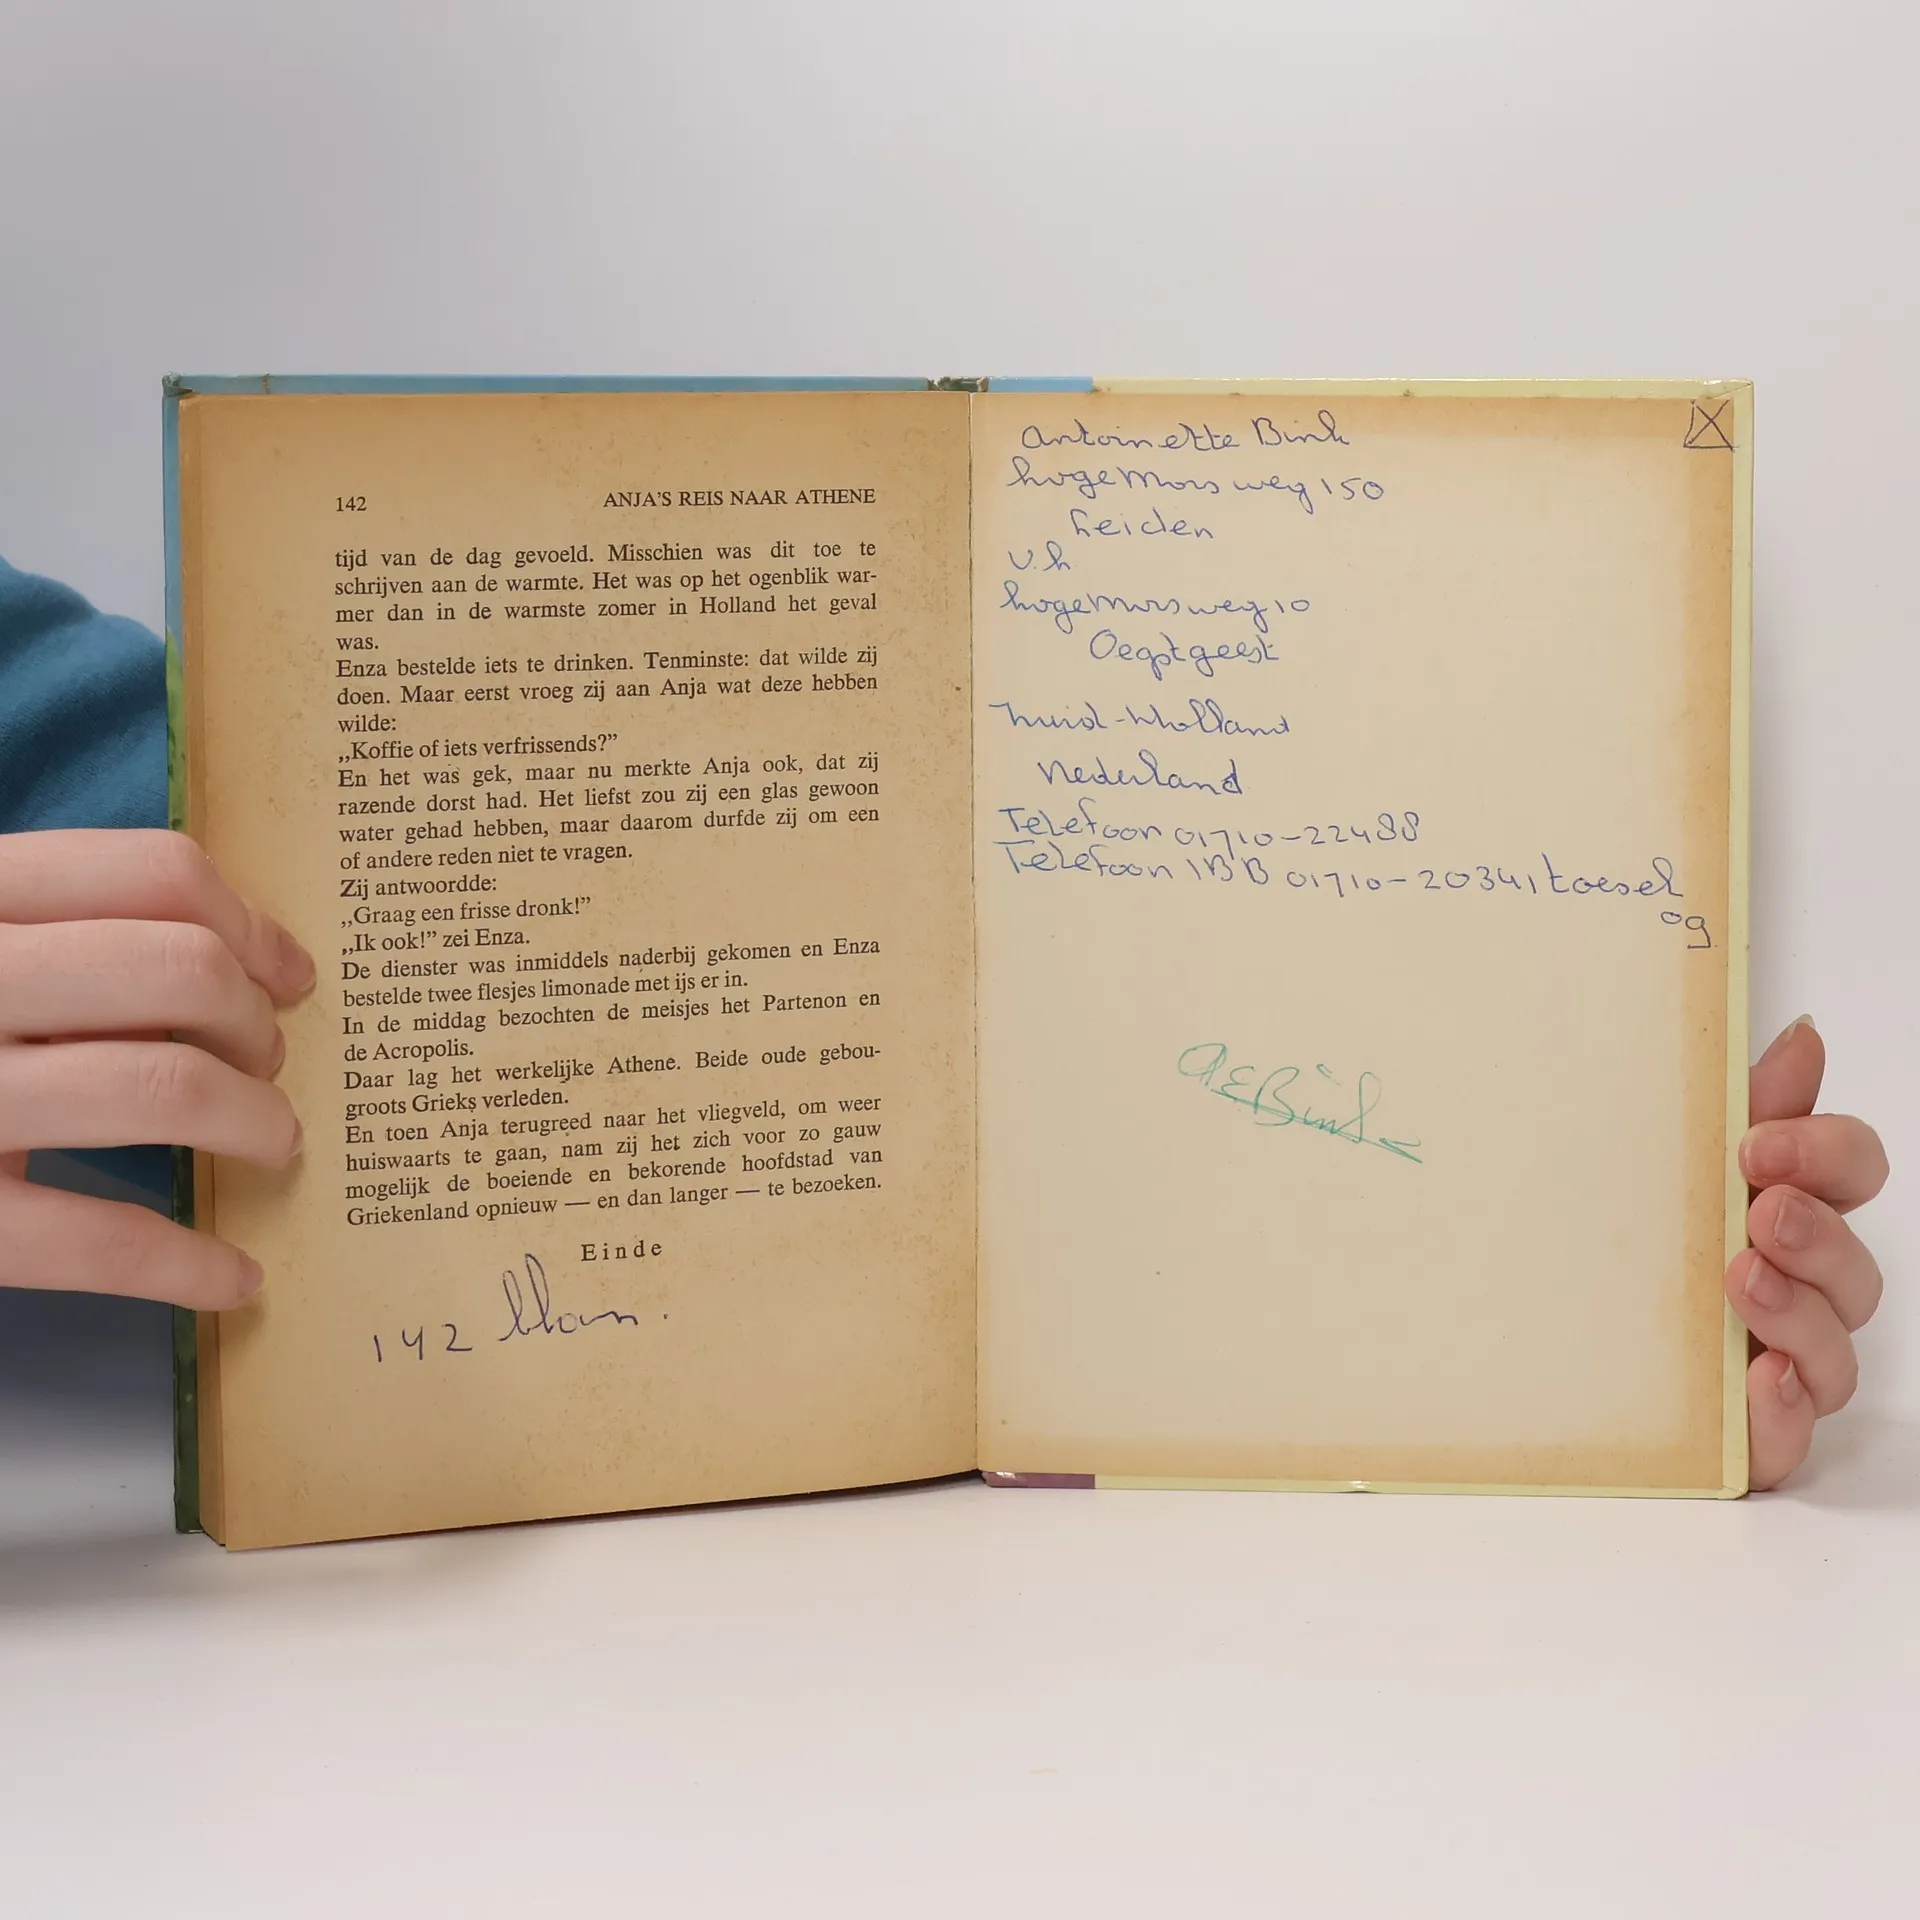 142
ANJA'S REIS NAAR ATHENE
tijd van de dag gevoeld. Misschien was dit toe te
schrijven aan de warmte. Het was op het ogenblik war-
mer dan in de warmste zomer in Holland het geval
was.
Enza bestelde iets te drinken. Tenminste: dat wilde zij
doen. Maar eerst vroeg zij aan Anja wat deze hebben
wilde:
„Koffie of iets verfrissends?”
En het was gek, maar nu merkte Anja ook, dat zij
razende dorst had. Het liefst zou zij een glas gewoon
water gehad hebben, maar daarom durfde zij om een
of andere reden niet te vragen.
Zij antwoordde:
„Graag een frisse dronk!”
„Ik ook!” zei Enza.
De dienster was inmiddels naderbij gekomen en Enza
bestelde twee flesjes limonade met ijs er in.
In de middag bezochten de meisjes het Partenon en
de Acropolis.
Daar lag het werkelijke Athene. Beide oude gebou-
groots Grieks verleden.
En toen Anja terugreed naar het vliegveld, om weer
huiswaarts te gaan, nam zij het zich voor zo gauw
mogelijk de boeiende en bekorende hoofdstad van
Griekenland opnieuw — en dan langer — te bezoeken.
Einde
142
Antoinette Bink
hogeMorsweg 150
Leiden
v.h.
hogeMorsweg 10
Oegstgeest
Zuid-Holland
Nederland
Telefoon 01710-22488
Telefoon IBB 01710-20341 toesel
09
AEBink